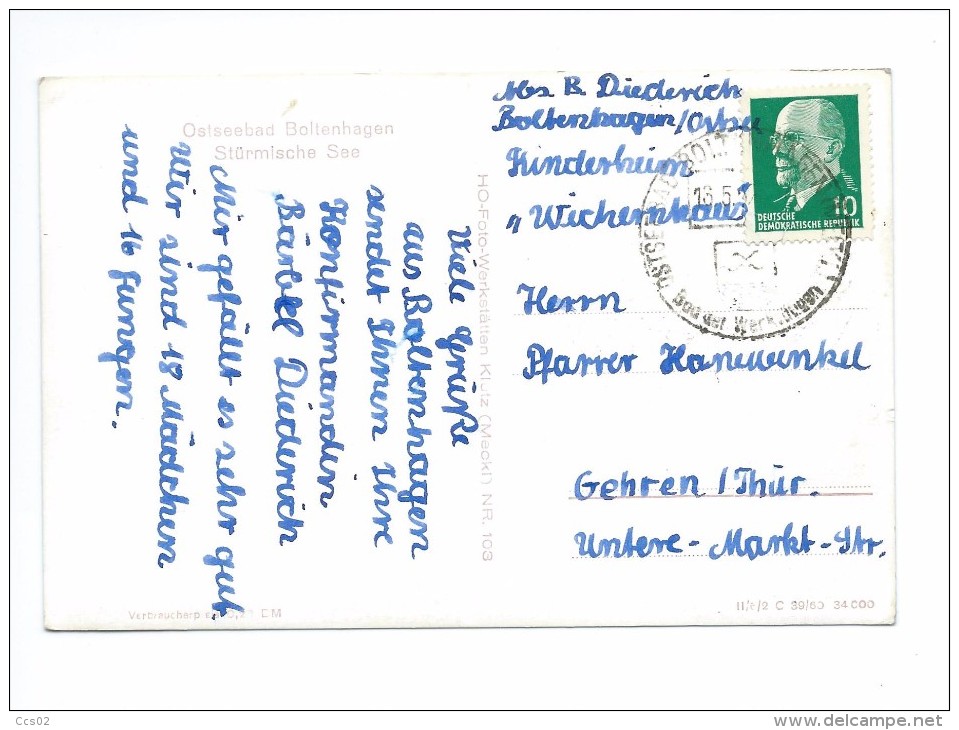 Ostseebad Boltenhagen
Stürmische See
Viele Grüße
aus Boltenhagen
sendet Ihnen Ihre
Konfirmandin
Bärbel Diederich
Mir gefällt es sehr gut
Wir sind 18 Mädchen
und 16 Jungen.
HO-Foto-Werkstätten Klütz (Meckl) NR. 103
Verbraucherp
DM
Abs B. Diederich
Boltenhagen/Ostsee
Kinderheim
"Wichernhaus"
DEUTSCHE
DEMOKRATISCHE REPUBLIK
10
Bad der Werktätigen
Herrn
Pfarrer Hanewinkel
Gehren/Thür.
Untere-Markt-Str.
II/6/2 C 39/60 34000
Ccs02
delcampe.net